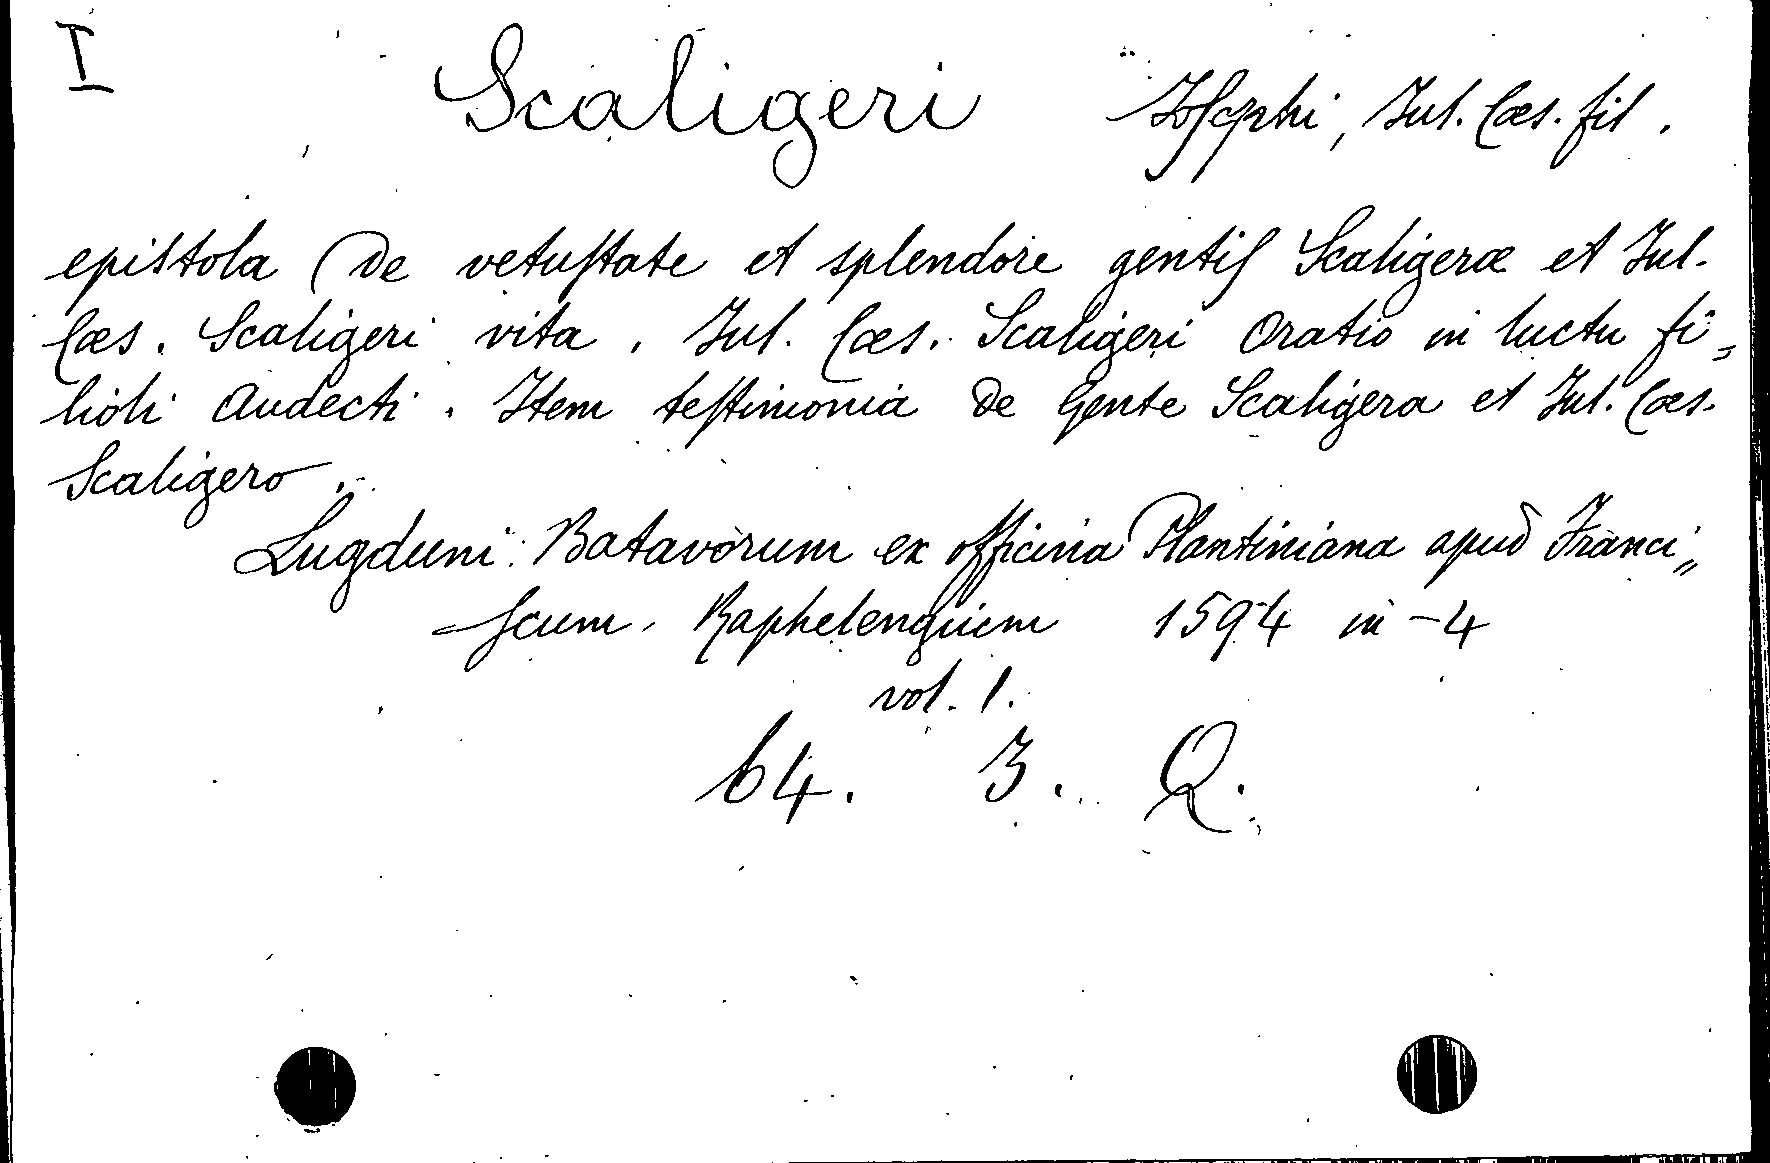 I
Scaligeri Josephi, Jul. Cæs. fil.
epistola de vetustate et splendore gentis Scaligeræ et Jul.
Cæs. Scaligeri vita. Jul. Cæs. Scaligeri Oratio in luctu fi=
lioli Audecti. Item testimonia de Gente Scaligera et Jul. Cæs.
Scaligero.
Lugduni Batavorum ex officina Plantiniana apud Franci=
scum Raphelengium 1594 in-4
vol. 1.
64. 3. Q.